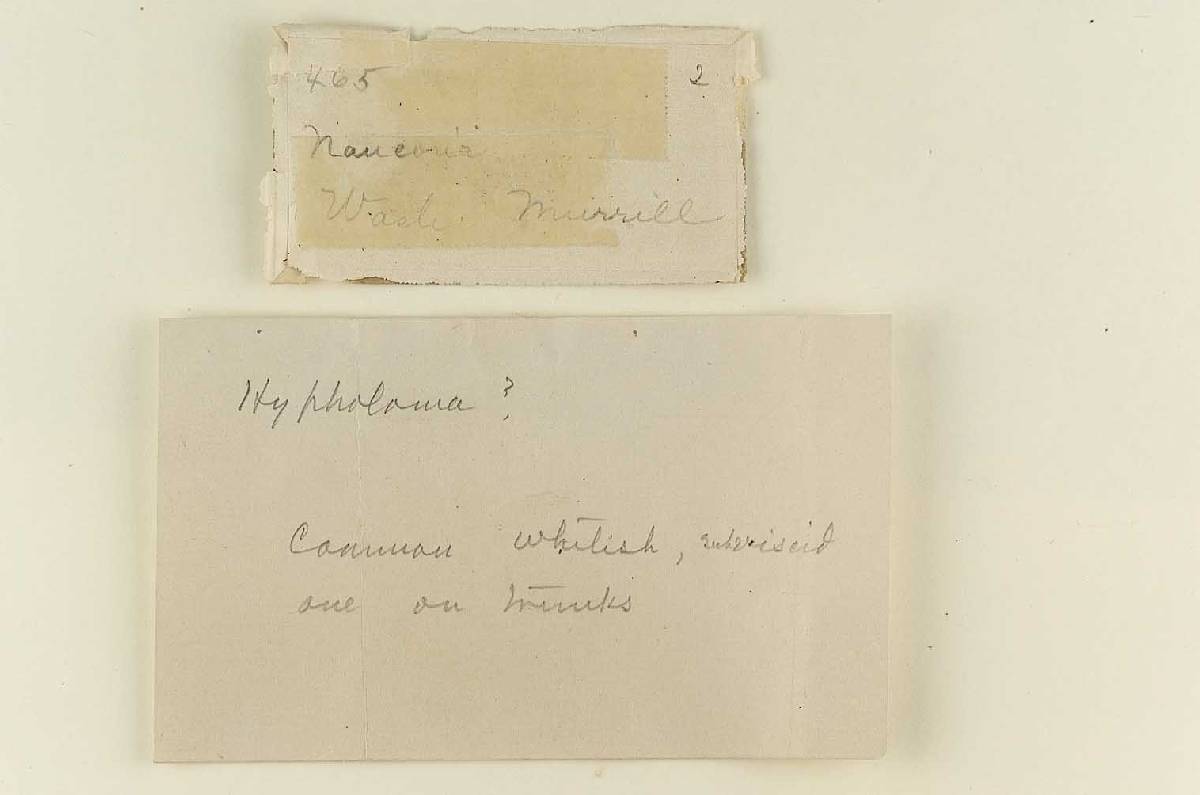 465 2
Naucoria
Wash. Murrill
Hypholoma ?
Common whitish, subviscid
one on trunks